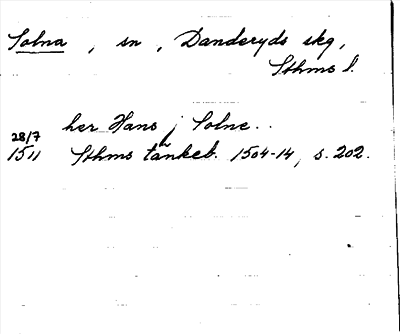 Solna, sn, Danderyds skg,
Sthms l.
her Hans j Solne..
28/7
1511 Sthms tänkeb. 1504-14, s. 202.